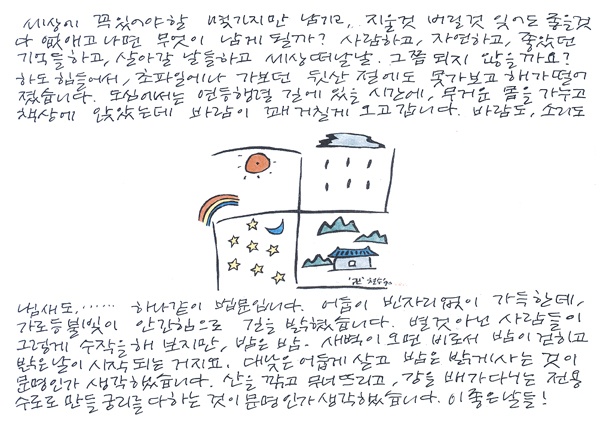 세상에 꼭 있어야할 몇가지만 남기고, 지울것 버릴것 잊어도 좋을것
다 없애고 나면 무엇이 남게 될까? 사람하고, 자연하고, 좋았던
기억들하고, 살아갈 날들하고 세상 떠날날. 그쯤 되지 않을까요?
하도 힘들어서, 초파일에나 가보던 뒷산 절에도 못가보고 해가 떨어
졌습니다. 도심에서는 연등행렬 길에 있을 시간에, 무거운 몸을 가누고
책상에 앉았는데 바람이 꽤 거칠게 오고갑니다. 바람도, 소리도
냄새도, …… 하나같이 법문입니다. 어둠이 빈자리없이 가득한데,
가로등불빛이 안간힘으로 길을 밝혔습니다. 별것 아닌 사람들이
그렇게 수작을 해 보지만, 밤은 밤. 새벽이 오면 비로서 밤이 걷히고
밝은날이 시작 되는 거지요. 대낮은 어둡게 살고 밤은 밝게 사는 것이
문명인가 생각했습니다. 산을 깎고 무너뜨리고, 강을 배가 다니는 전용
수로로 만들 궁리를 다하는 것이 문명인가 생각했습니다. 이 좋은날들!